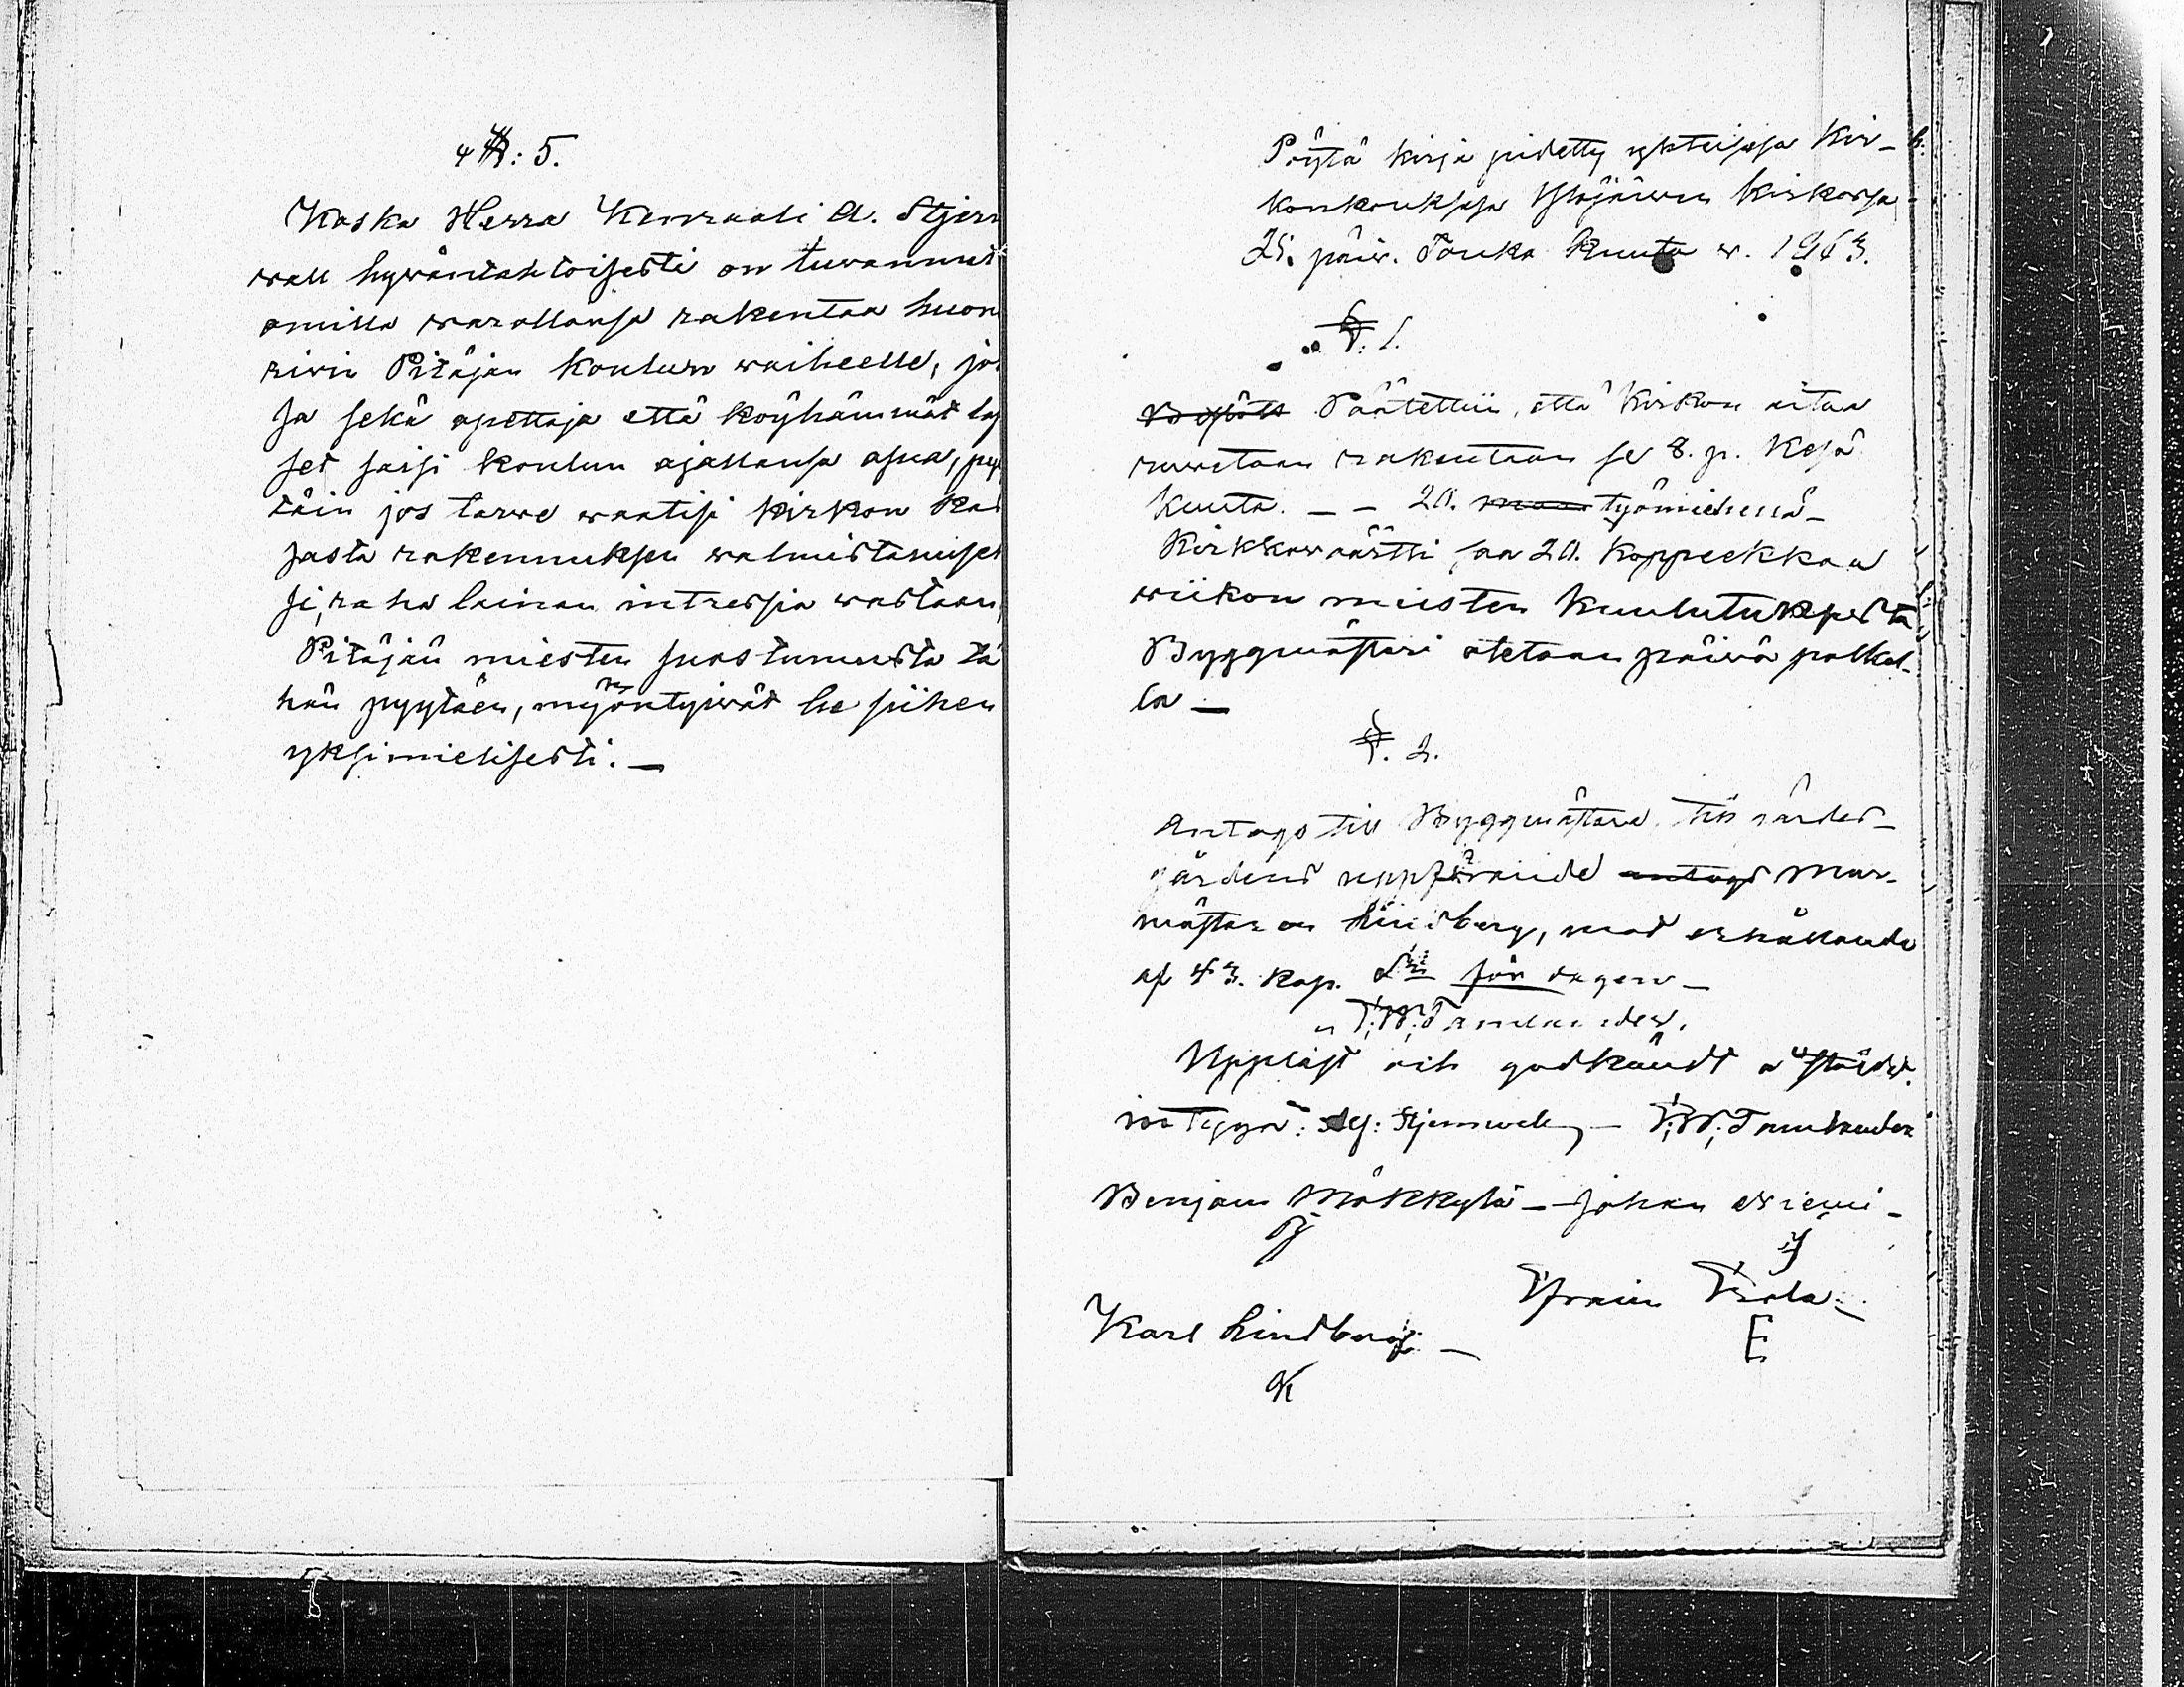 §: 5.
Koska Herra Kenraali A. Stjern
wall hywäntahtoisesti on luwannut
omilla warallansa rakentaa huon
riwin Pitäjän koulun waiheelle, jos
sa sekä opettaja että köyhämmät lap
set saisi koulun ajallansa asua, pyy
täin jos tarwe waatisi kirkon kas
sasta rakennuksen walmistamisek
si, raha lainan intressia wastaan,
Pitäjän miesten suostumusta tä
hän pyytäen, myöntyiwät he siihen
yksimielisesti. —
Pöytä kirja pidetty yhteisessä Kir-
konkouksessa Ylöjärwen kirkossa
25. päiw. Touko kuuta w. 1863.
§. 1.
Päätettiin, että kirkon aitaa
ruwetaan rakentaan se 8. p. Kesä
kuuta. – – 20. työmiehenä –
Kirkkowäärtti saa 20. koppeekkaa
wiikon muisten kuulutuksesta
Byggmästari otetaan päiwä palkal-
la —
§. 2.
Antogs till Byggmästare till
gårdens uppförande antogs Mur-
mästaren Lindberg, mot erhållande
af 43. kop. S för dagen –
Uppläst och godkändt
intygar: Stjernwall –
Benjam Mäkkylä – Johan Niemi –
J
Efraim
Karl Lindberg – E
K